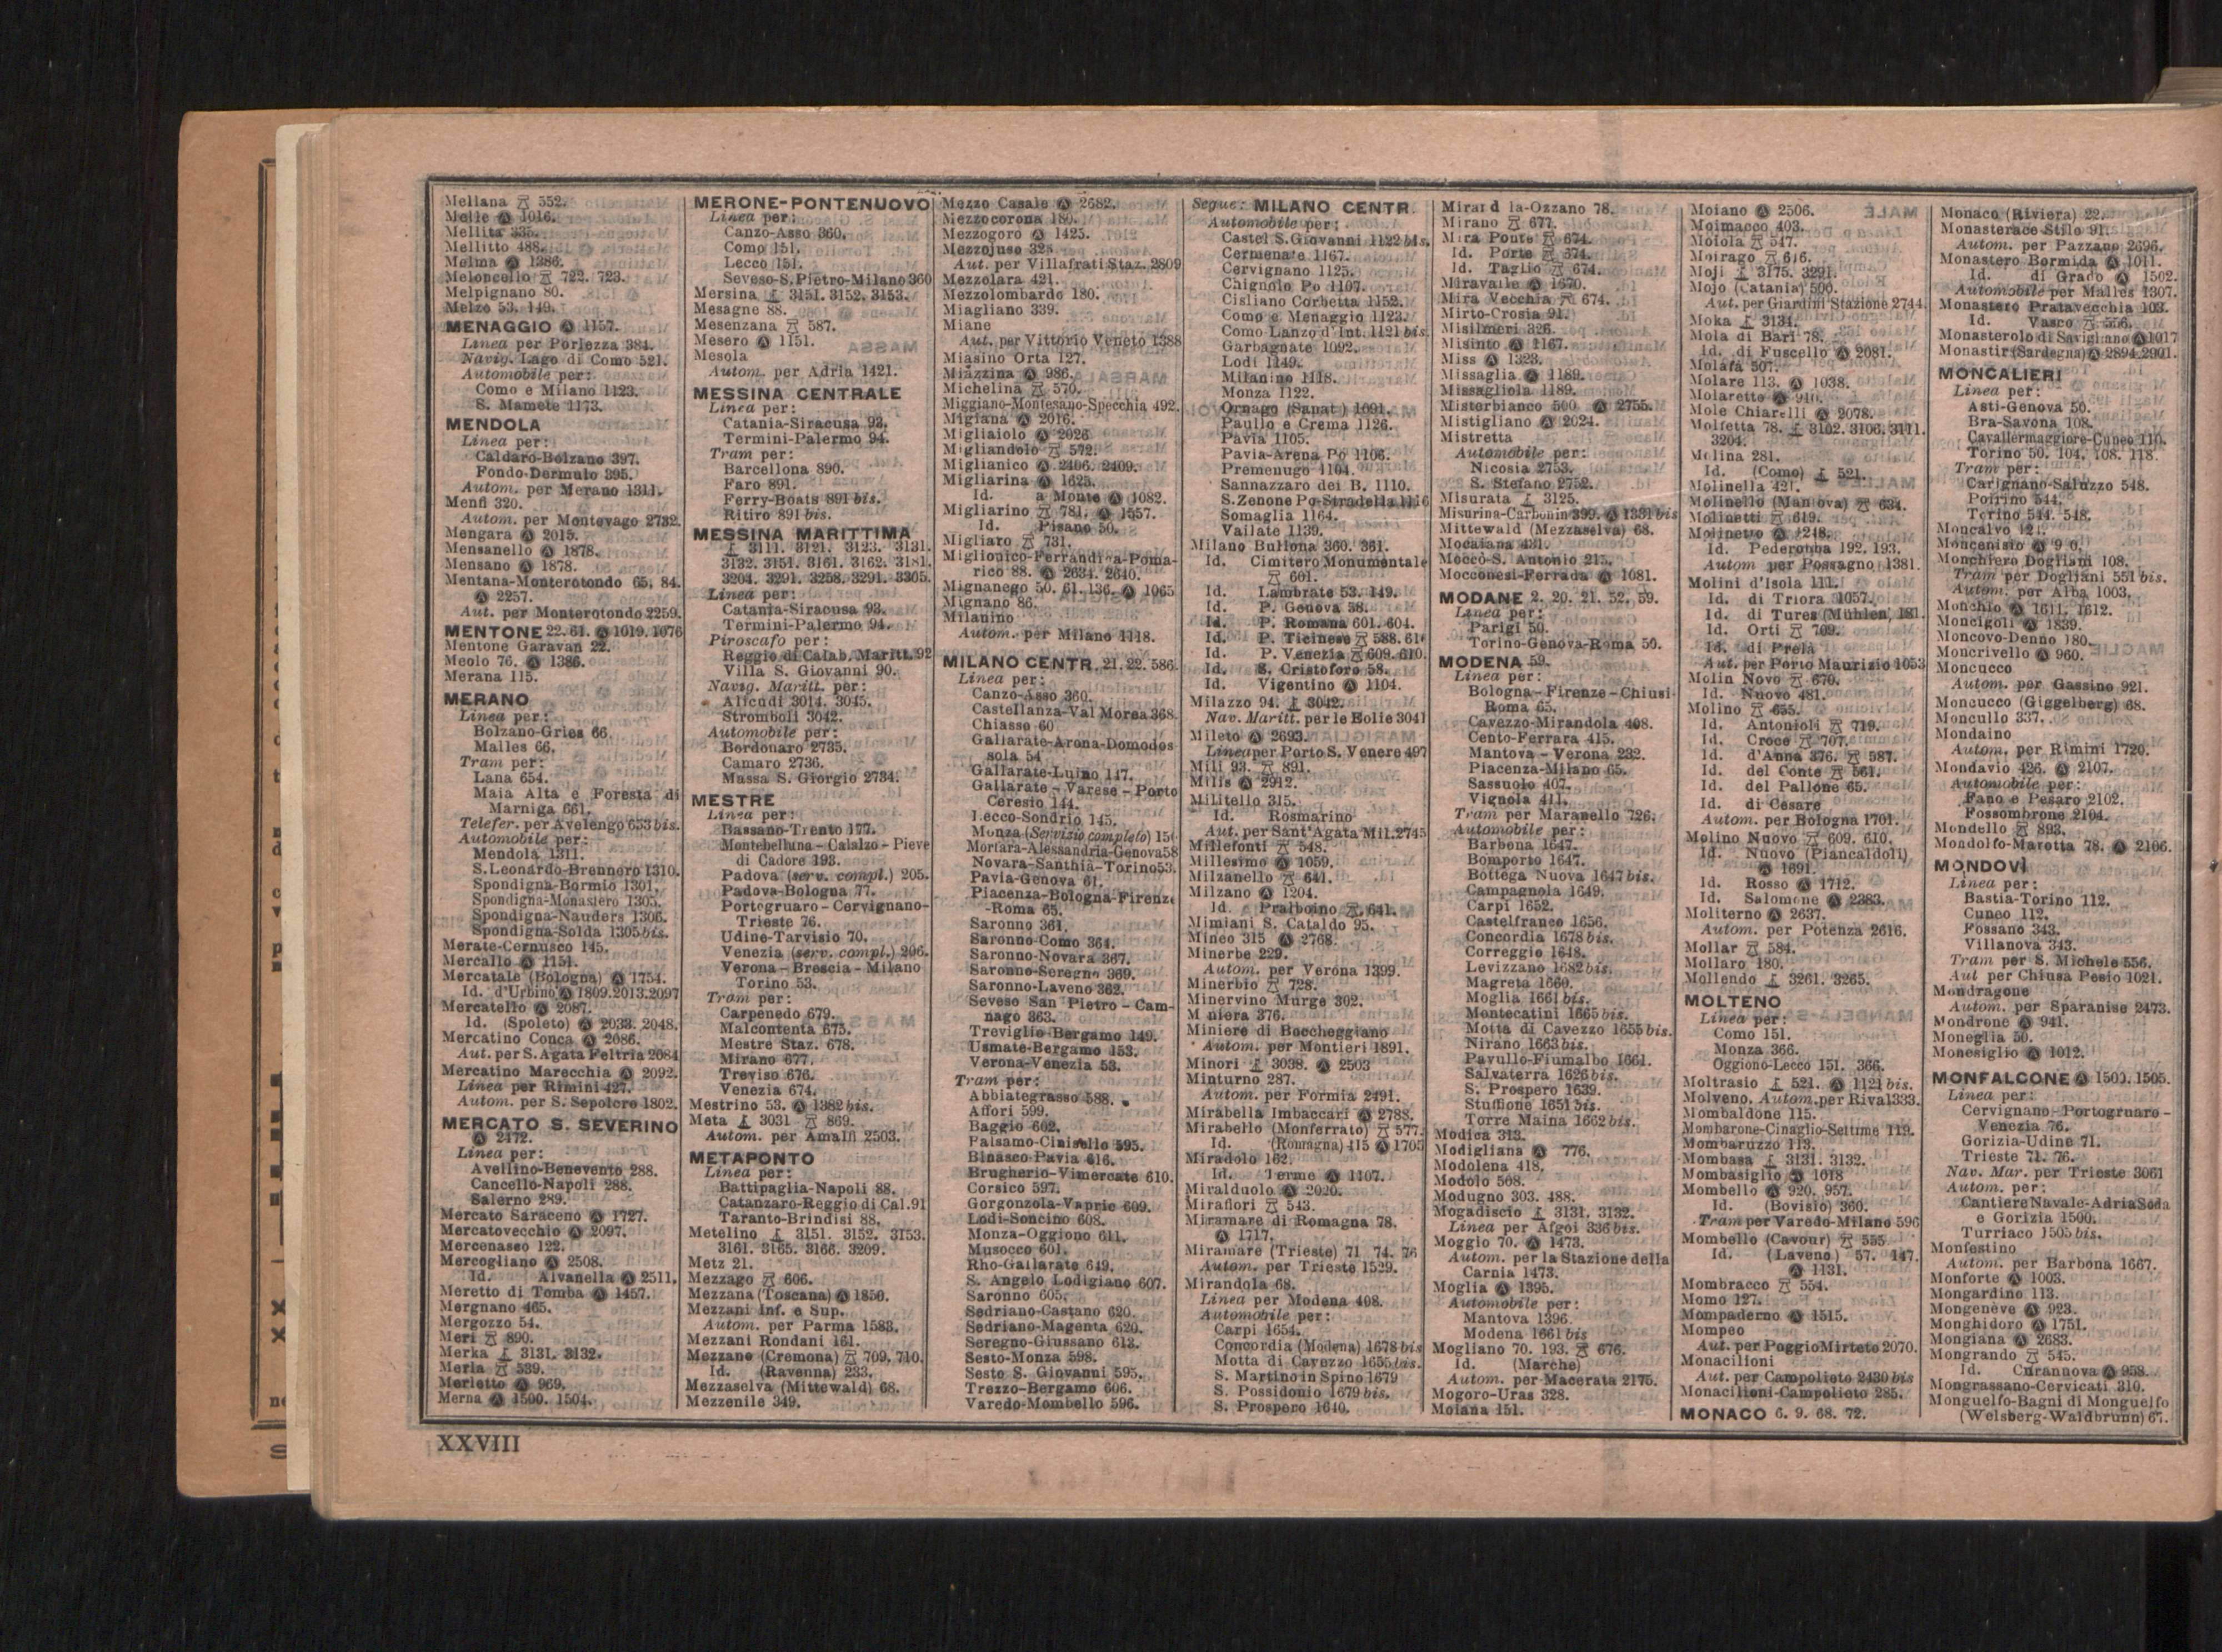 Mellana 552.
Melle 1016.
Mellita 335.
Mellitto 488.
Melma 1386.
Meloncello 722. 723.
Melpignano 80.
Melzo 53. 149.
MENAGGIO 1157.
Linea per Porlezza 384.
Navig. Lago di Como 521.
Automobile per:
Como e Milano 1123.
S. Mamete 1173.
MENDOLA
Linea per:
Caldaro-Bolzano 397.
Fondo-Dermulo 395.
Autom. per Merano 1311.
Menfi 320.
Autom. per Montevago 2732.
Mengara 2015.
Mensanello 1878.
Mensano 1878.
Mentana-Monterotondo 65. 84.
2257.
Aut. per Monterotondo 2259.
MENTONE 22. 61. 1019. 1076
Mentone Garavan 22.
Meolo 76. 1386.
Merana 115.
MERANO
Linea per:
Bolzano-Gries 66.
Malles 66.
Tram per:
Lana 654.
Maia Alta e Foresta di
Marniga 661.
Telefer. per Avelengo 653 bis.
Automobile per:
Mendola 1311.
S. Leonardo-Brennero 1310.
Spondigna-Bormio 1301.
Spondigna-Monastero 1305.
Spondigna-Nauders 1306.
Spondigna-Solda 1305 bis.
Merate-Cernusco 145.
Mercallo 1151.
Mercatale (Bologna) 1754.
Id. d'Urbino 1809. 2013. 2097
Mercatello 2087.
Id. (Spoleto) 2033. 2048.
Mercatino Conca 2086.
Aut. per S. Agata Feltria 2084
Mercatino Marecchia 2092.
Linea per Rimini 427.
Autom. per S. Sepolcro 1802.
MERCATO S. SEVERINO
2472.
Linea per:
Avellino-Benevento 288.
Cancello-Napoli 288.
Salerno 289.
Mercato Saraceno 1727.
Mercatovecchio 2097.
Mercenasco 122.
Mercogliano 2508.
Id. Alvanella 2511.
Meretto di Tomba 1457.
Mergnano 465.
Mergozzo 54.
Merì 890.
Merka 3131. 3132.
Merla 539.
Merletto 969.
Merna 1500. 1504.
MERONE-PONTENUOVO
Linea per:
Canzo-Asso 360.
Como 151.
Lecco 151.
Seveso-S. Pietro-Milano 360
Mersina 3151. 3152. 3153.
Mesagne 88.
Mesenzana 587.
Mesero 1151.
Mesola
Autom. per Adria 1421.
MESSINA CENTRALE
Linea per:
Catania-Siracusa 93.
Termini-Palermo 94.
Tram per:
Barcellona 890.
Faro 891.
Ferry-Boats 891 bis.
Ritiro 891 bis.
MESSINA MARITTIMA
3111. 3121. 3123. 3131.
3132. 3151. 3161. 3162. 3181.
3204. 3291. 3258. 3291. 3305.
Linea per:
Catania-Siracusa 93.
Termini-Palermo 94.
Piroscafo per:
Reggio di Calab. Maritt. 92
Villa S. Giovanni 90.
Navig. Maritt. per:
Alicudi 3014. 3045.
Stromboli 3042.
Automobile per:
Bordonaro 2735.
Camaro 2736.
Massa S. Giorgio 2734.
MESTRE
Linea per:
Bassano-Trento 177.
Montebelluna - Calalzo - Pieve
di Cadore 193.
Padova (serv. compl.) 205.
Padova-Bologna 77.
Portogruaro - Cervignano-
Trieste 76.
Udine-Tarvisio 70.
Venezia (serv. compl.) 206.
Verona - Brescia - Milano
Torino 53.
Tram per:
Carpenedo 679.
Malcontenta 675.
Mestre Staz. 678.
Mirano 677.
Treviso 676.
Venezia 674.
Mestrino 53. 1382 bis.
Meta 3031 869.
Autom. per Amalfi 2503.
METAPONTO
Linea per:
Battipaglia-Napoli 88.
Catanzaro-Reggio di Cal. 91
Taranto-Brindisi 88.
Metelino 3151. 3152. 3153.
3161. 3165. 3166. 3209.
Metz 21.
Mezzago 606.
Mezzana (Toscana) 1850.
Mezzani Inf. e Sup.
Autom. per Parma 1583.
Mezzani Rondani 161.
Mezzano (Cremona) 709. 710.
Id. (Ravenna) 233.
Mezzaselva (Mittewald) 68.
Mezzenile 349.
Mezzo Casale 2682.
Mezzocorona 180.
Mezzogoro 1425.
Mezzojuso 328
Aut. per Villafrati Staz. 2809
Mezzolara 421.
Mezzolombardo 180.
Miagliano 339.
Miane
Aut. per Vittorio Veneto 1388
Miasino Orta 127.
Miazzina 986.
Michelina 570.
Miggiano-Montesano-Specchia 492.
Migiana 2016.
Migliaiolo 2026
Migliandolo 572.
Miglianico 2406. 2409.
Migliarina 1625.
Id. a Monte 1082.
Migliarino 781. 1557.
Id. Pisano 50.
Migliaro 731.
Miglionico-Ferrandina-Poma-
rico 88. 2634. 2640.
Mignanego 50. 61. 136. 1065
Mignano 86.
Milanino
Autom. per Milano 1118.
MILANO CENTR. 21. 22. 586.
Linea per:
Canzo-Asso 360.
Castellanza-Val Morea 368.
Chiasso 60
Gallarate-Arona-Domodos
sola 54
Gallarate-Luino 147.
Gallarate - Varese - Porto
Ceresio 144.
Lecco-Sondrio 145.
Monza (Servizio completo) 15
Mortara-Alessandria-Genova 58
Novara-Santhià-Torino 53.
Pavia-Genova 61.
Piacenza-Bologna-Firenze
-Roma 65.
Saronno 361.
Saronno-Como 364.
Saronno-Novara 367.
Saronno-Seregno 369.
Saronno-Laveno 362.
Seveso San Pietro - Cam-
nago 363.
Treviglio-Bergamo 149.
Usmate-Bergamo 153.
Verona-Venezia 53.
Tram per:
Abbiategrasso 588.
Affori 599.
Baggio 602.
Balsamo-Cinisello 595.
Binasco-Pavia 616.
Brugherio-Vimercate 610.
Corsico 597.
Gorgonzola-Vaprio 609.
Lodi-Soncino 608.
Monza-Oggiono 611.
Musocco 601.
Rho-Gallarate 649.
S. Angelo Lodigiano 607.
Saronno 605.
Sedriano-Castano 620.
Sedriano-Magenta 620.
Seregno-Giussano 613.
Sesto-Monza 598.
Sesto S. Giovanni 595.
Trezzo-Bergamo 606.
Varedo-Mombello 596.
Segue: MILANO CENTR.
Automobile per:
Castel S. Giovanni 1122 bis.
Cermenate 1167.
Cervignano 1125.
Chignolo Po 1107.
Cisliano Corbetta 1152.
Como e Menaggio 1123.
Como Lanzo d'Int. 1121 bis.
Garbagnate 1092.
Lodi 1149.
Milanino 1118.
Monza 1122.
Ornago (Sanat.) 1091.
Paullo e Crema 1126.
Pavia 1105.
Pavia-Arena Po 1106.
Premenugo 1104.
Sannazzaro dei B. 1110.
S. Zenone Po-Stradella 1116
Somaglia 1164.
Vailate 1139.
Milano Bullona 360. 361.
Id. Cimitero Monumentale
601.
Id. Lambrate 53. 149.
Id. P. Genova 58.
Id. P. Romana 601. 604.
Id. P. Ticinese 588. 61
Id. P. Venezia 609. 610.
Id. S. Cristoforo 58.
Id. Vigentino 1104.
Milazzo 94. 3042.
Nav. Maritt. per le Eolie 3041
Mileto 2693.
Linea per Porto S. Venere 497
Mili 93. 891.
Milis 2912.
Militello 315.
Id. Rosmarino
Aut. per Sant'Agata Mil. 2745
Millefonti 548.
Millesimo 1059.
Milzanello 641.
Milzano 1204.
Id. Pralboino 641.
Mimiani S. Cataldo 95.
Mineo 315 2768.
Minerbe 229.
Autom. per Verona 1399.
Minerbio 728.
Minervino Murge 302.
M niera 376.
Miniere di Boccheggiano
Autom. per Montieri 1891.
Minori 3038. 2503
Minturno 287.
Autom. per Formia 2491.
Mirabella Imbaccari 2788.
Mirabello (Monferrato) 577.
Id. (Romagna) 415 1705
Miradolo 162.
Id. Terme 1107.
Miralduolo 2020.
Miraflori 543.
Miramare di Romagna 78.
1717.
Miramare (Trieste) 71 74. 76
Autom. per Trieste 1529.
Mirandola 68.
Linea per Modena 408.
Automobile per:
Carpi 1654.
Concordia (Modena) 1678 bis
Motta di Cavezzo 1655 bis.
S. Martino in Spino 1679
S. Possidonio 1679 bis.
S. Prospero 1640.
Mirand la-Ozzano 78.
Mirano 677.
Mira Ponte 674.
Id. Porte 674.
Id. Taglio 674.
Miravalle 1670.
Mira Vecchia 674.
Mirto-Crosia 91.
Misilmeri 326.
Misinto 1167.
Miss 1323.
Missaglia 1189.
Missagliola 1189.
Misterbianco 500 2755.
Mistigliano 2024.
Mistretta
Automobile per:
Nicosia 2753.
S. Stefano 2752.
Misurata 3125.
Misurina-Carbonin 399. 1331 bis
Mittewald (Mezzaselva) 68.
Mocaiana 431.
Moccò-S. Antonio 215.
Mocconesi-Ferrada 1081.
MODANE 2. 20. 21. 52. 59.
Linea per:
Parigi 50.
Torino-Genova-Roma 50.
MODENA 59.
Linea per:
Bologna - Firenze - Chiusi-
Roma 65.
Cavezzo-Mirandola 408.
Cento-Ferrara 415.
Mantova - Verona 232.
Piacenza-Milano 65.
Sassuolo 407.
Vignola 411.
Tram per Maranello 726.
Automobile per:
Barbona 1647.
Bomporto 1647.
Bottega Nuova 1647 bis.
Campagnola 1649.
Carpi 1652.
Castelfranco 1656.
Concordia 1678 bis.
Correggio 1648.
Levizzano 1682 bis.
Magreta 1660.
Moglia 1661 bis.
Montecatini 1665 bis.
Motta di Cavezzo 1655 bis.
Nirano 1663 bis.
Pavullo-Fiumalbo 1661.
Salvaterra 1626 bis.
S. Prospero 1639.
Stuffione 1651 bis.
Torre Maina 1662 bis.
Modica 313.
Modigliana 776.
Modolena 418.
Modolo 508.
Modugno 303. 488.
Mogadiscio 3131. 3132.
Linea per Afgoi 336 bis.
Moggio 70. 1473.
Autom. per la Stazione della
Carnia 1473.
Moglia 1395.
Automobile per:
Mantova 1396.
Modena 1661 bis
Mogliano 70. 193. 676.
Id. (Marche)
Autom. per Macerata 2175.
Mogoro-Uras 328.
Moiana 151.
Moiano 2506.
Moimacco 403.
Moiola 547.
Moirago 616.
Moji 3175. 3291.
Mojo (Catania) 500.
Aut. per Giardini Stazione 2744.
Moka 3134.
Mola di Bari 78.
Id. di Fuscello 2081.
Molafà 507.
Molare 113. 1038.
Molaretto 910.
Mole Chiarelli 2078.
Molfetta 78. 3102. 3106. 3111.
3204.
Molina 281.
Id. (Como) 521.
Molinella 421.
Molinello (Mantova) 634.
Molinetti 619.
Molinetto 1248.
Id. Pederobba 192. 193.
Autom per Possagno 1381.
Molini d'Isola 111.
Id. di Triora 1057.
Id. di Tures (Mühlen) 181.
Id. Orti 709.
Id. di Prelà
Aut. per Porto Maurizio 1053
Molin Novo 670.
Id. Nuovo 481.
Molino 655.
Id. Antonioli 719.
Id. Croce 707.
Id. d'Anna 376. 587.
Id. del Conte 561.
Id. del Pallone 65.
Id. di Cesare
Autom. per Bologna 1701.
Molino Nuovo 609. 610.
Id. Nuovo (Piancaldoli)
1691.
Id. Rosso 1712.
Id. Salomone 2383.
Moliterno 2637.
Autom. per Potenza 2616.
Mollar 584.
Mollaro 180.
Mollendo 3261. 3265.
MOLTENO
Linea per:
Como 151.
Monza 366.
Oggiono-Lecco 151. 366.
Moltrasio 521. 1121 bis.
Molveno. Autom. per Riva 1333.
Mombaldone 115.
Mombarone-Cinaglio-Settime 119.
Mombaruzzo 113.
Mombasa 3131. 3132.
Mombasiglio 1018
Mombello 920. 957.
Id. (Bovisio) 360.
Tram per Varedo-Milano 596
Mombello (Cavour) 555
Id. (Laveno) 57. 147.
1131.
Mombracco 554.
Momo 127.
Mompaderno 1515.
Mompeo
Aut. per Poggio Mirteto 2070.
Monacilioni
Aut. per Campolieto 2430 bis
Monacilioni-Campolieto 285.
MONACO 6. 9. 68. 72.
Monaco (Riviera) 22.
Monasterace Stilo 91.
Autom. per Pazzano 2696.
Monastero Bormida 1011.
Id. di Grado 1502.
Automobile per Malles 1307.
Monastero Pratavecchia 103.
Id. Vasco 556.
Monasterolo di Savigliano 1017
Monastir (Sardegna) 2894. 2901.
MONCALIERI
Linea per:
Asti-Genova 50.
Bra-Savona 108.
Cavallermaggiore-Cuneo 110.
Torino 50. 104. 108. 118.
Tram per:
Carignano-Saluzzo 548.
Poirino 544.
Torino 544. 548.
Moncalvo 124.
Moncenisio
Monchiero Dogliani 108.
Tram per Dogliani 551 bis.
Autom. per Alba 1003.
Monchio 1611. 1612.
Moncigoli 1839.
Moncovo-Denno 180.
Moncrivello 960.
Moncucco
Autom. per Gassino 921.
Moncucco (Giggelberg) 68.
Moncullo 337.
Mondaino
Autom. per Rimini 1720.
Mondavio 426. 2107.
Automobile per:
Fano e Pesaro 2102.
Fossombrone 2104.
Mondello 893.
Mondolfo-Marotta 78. 2106.
MONDOVÌ
Linea per:
Bastia-Torino 112.
Cuneo 112.
Fossano 343.
Villanova 343.
Tram per S. Michele 556.
Aut per Chiusa Pesio 1021.
Mondragone
Autom. per Sparanise 2473.
Mondrone 941.
Moneglia 50.
Monesiglio 1012.
MONFALCONE 1500. 1505.
Linea per:
Cervignano-Portogruaro-
Venezia 76.
Gorizia-Udine 71.
Trieste 71. 76.
Nav. Mar. per Trieste 3061
Autom. per:
Cantiere Navale-Adria Soda
e Gorizia 1500.
Turriaco 1505 bis.
Monfestino
Autom. per Barbona 1667.
Monforte 1003.
Mongardino 113.
Mongenève 923.
Monghidoro 1751.
Mongiana 2683.
Mongrando 545.
Id. Curanuova 958.
Mongrassano-Cervicati 310.
Monguelfo-Bagni di Monguelfo
(Welsberg-Waldbrunn) 67.
XXVIII